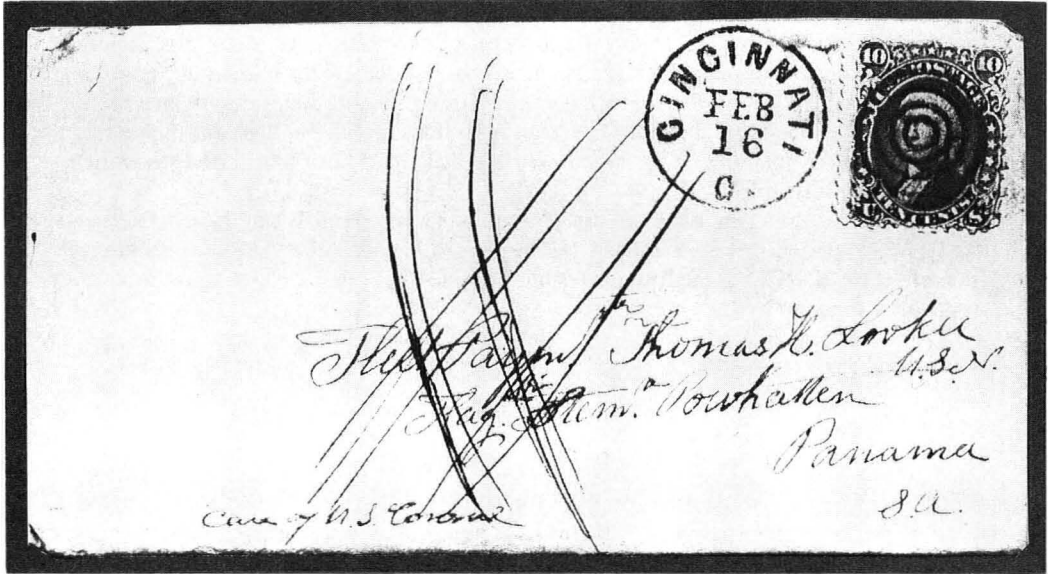 CINCINNATI
FEB
16
O.
10 10
U.S. POSTAGE
TEN CENTS
U S
Fleet Paym. Thomas H. Looker
U.S.N.
Flag Stemr. Powhatten
Panama
S.A.
Care of U.S. Consul